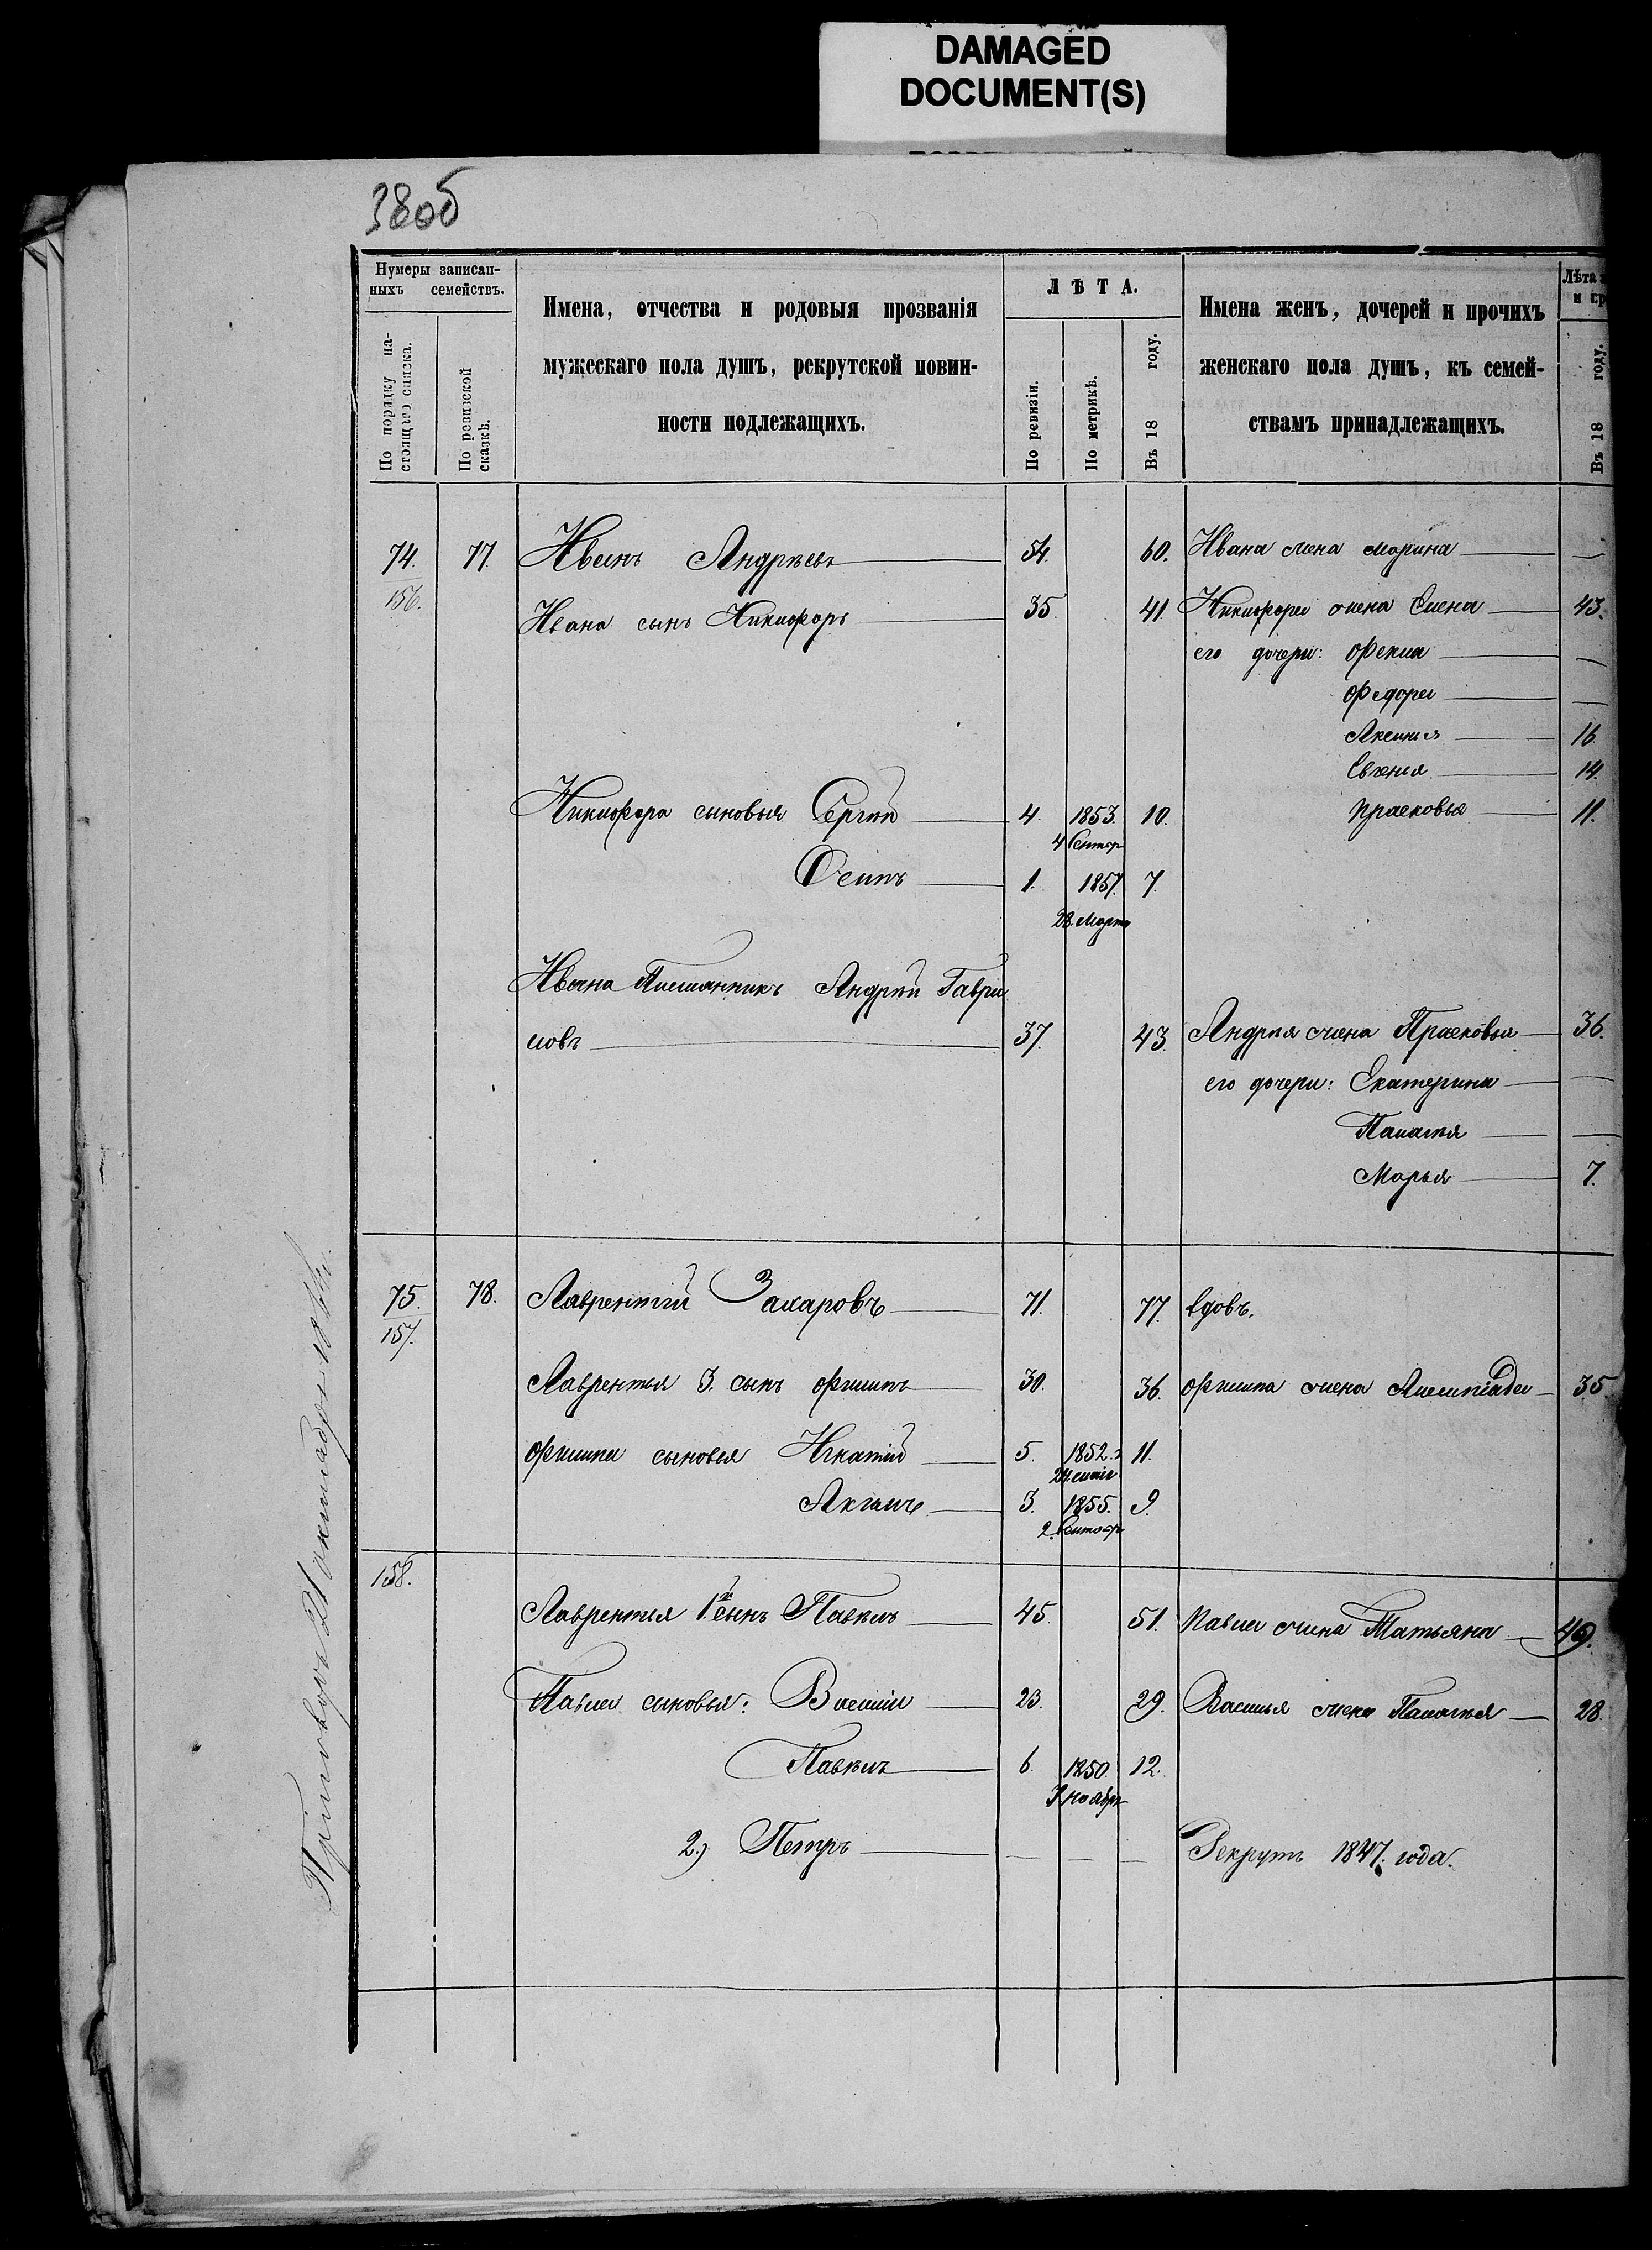 DAMAGED
DOCUMENT(S)
38об
Нумеры записан-
ныхъ семействъ.
По порядку на-
стоящаго списка.
По ревизской
сказкѣ.
Имена, отчества и родовыя прозванія
мужескаго пола душъ, рекрутской повин-
ности подлежащихъ.
ЛѢТА.
По ревизіи.
По метрикѣ.
Въ 18 году.
Имена женъ, дочерей и прочихъ
женскаго пола душъ, къ семей-
ствамъ принадлежащихъ.
Лѣта
и
Въ 18 году.
74. 77. Иванъ Андрѣевъ 54. 60. Ивана жена Марина —
156.
Ивана сынъ Никифоръ 35 41 Никифора жена Елена 43.
его дочери: Фекла —
Федора —
Аксинья 16
Евгенія 14.
Никифора сыновья Сергѣй 4. 1853. 10. Прасковья 11.
4 Сентяр
Осипъ 1. 1857. 7.
28. Марта
Ивана Племянникъ Андрѣй Гаври
ловъ 37. 43. Андрѣя жена Прасковья 36.
его дочери: Екатерина —
Палагѣя —
Марья 7.
75. 78. Лаврентій Захаровъ 71. 77. вдовъ.
157.
Лаврентья 3. сынъ Филипъ 30. 36. Филипа жена 35
Филипа сыновья Игнатій 5. 1852. 11.
3. 1855. 9.
2. Сентяр
158.
Лаврентья 1й сынъ Павелъ 45. 51. Павла жена Татьяна 49.
Павла сыновья: Василій 23. 29. Василья жена Палагѣя 28.
Павелъ 6. 1850. 12.
ноября
2.) Петръ — — — Рекрутъ 1847. года.
Приговоръ